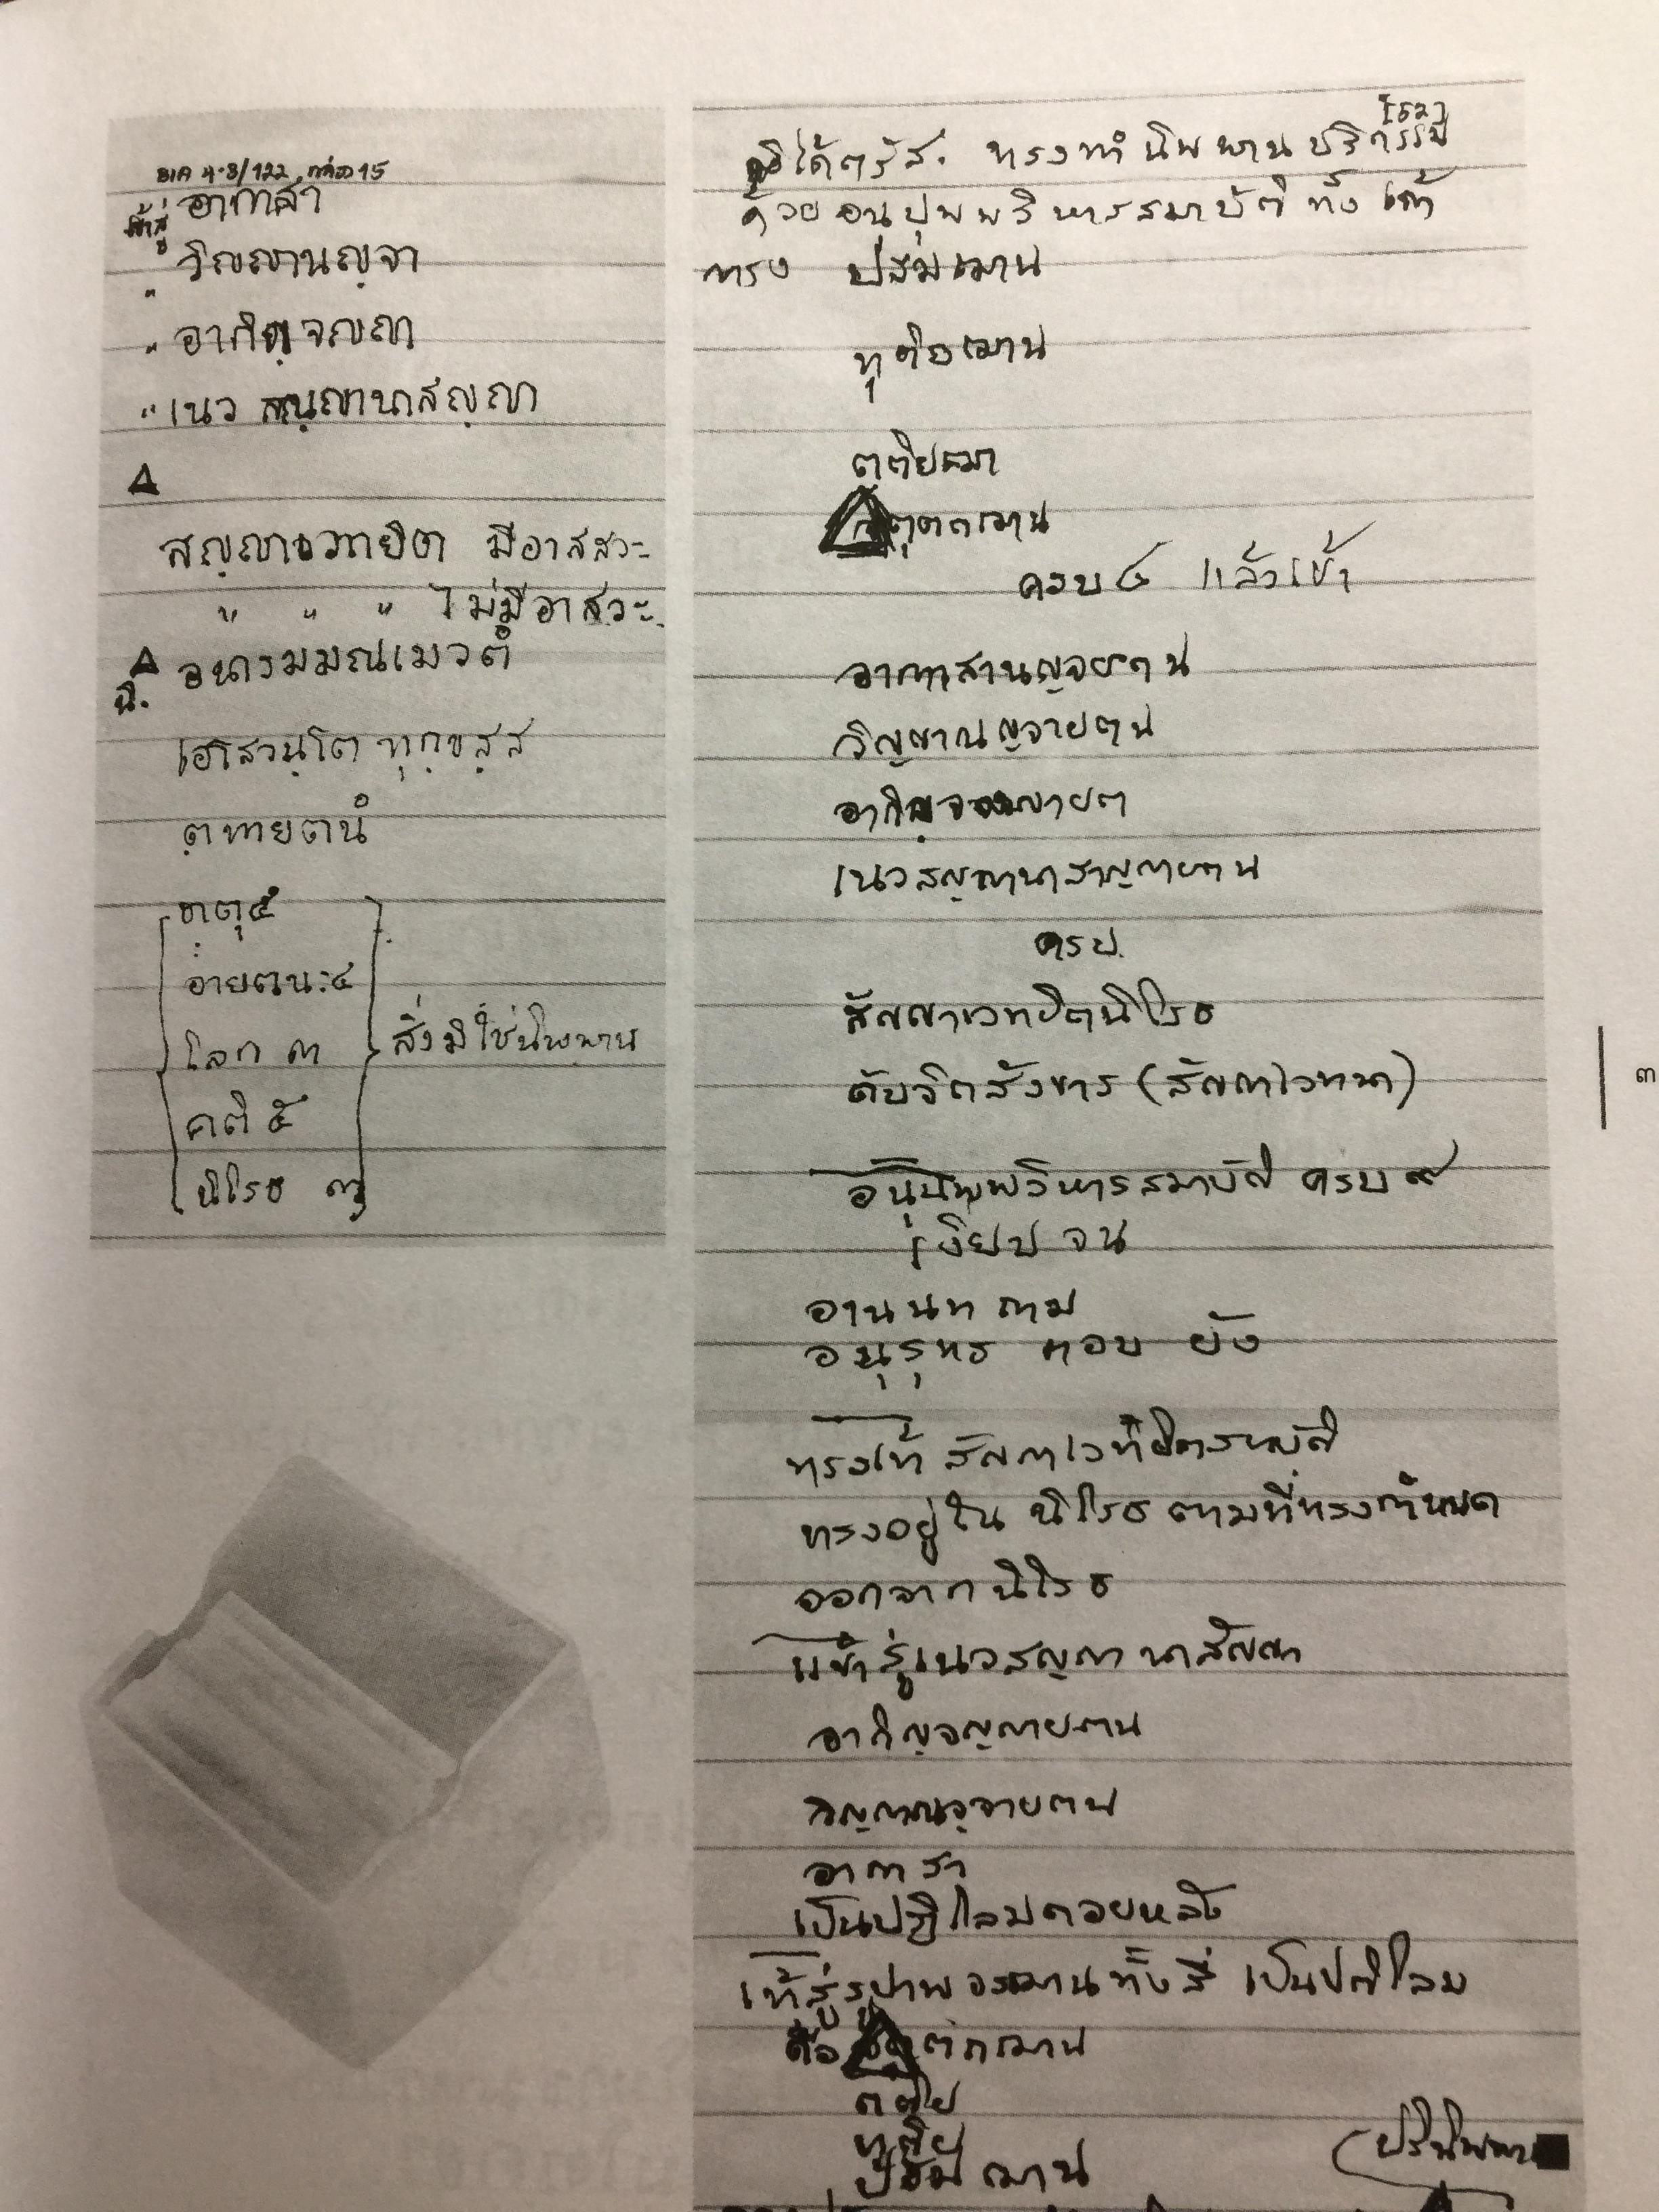 BIA 4-3/122 กล่อง 15
เข้าสู่ อากาสา
" วิญญานญฺจา
" อากิญฺจญฺญา
" เนวสญฺญานาสญฺญา
สญฺญาเวทยิต มีอาสสวะ
" " " ไม่มีอาสวะ
ฉ.
เอาสวนฺโต ทุกฺขสฺส
ตฺทายตนํ
ธาตุ ๕
อายตนะ ๔
โลก ๓
คติ ๕
นิโรธ ๓
สิ่งมิใช่นิพพาน
[52]
มิได้ตรัส. ทรงทำนิพพานบริกรรม
ด้วยอนุปุพพวิหารสมาบัติทั้งเก้า
ทรง ปสมฌาน
ทุติยฌาน
ตุติยฌา
จตุตถฌาน
ครบ ๔ แล้วเข้า
อากาสานญฺจายตน
วิญฺญาณญฺจายตน
อากิญฺจญฺญายต
เนวสญฺญานาสญฺญายตน
ครบ.
สัญญาเวทยิตนิโรธ
ดับจิตสังขาร (สัญญาเวทนา)
อนุปุพพวิหารสมาบัติ ครบ ๙
เงียบ จน
อานนท ถาม
อนุรุทธ ตอบ ยัง
ทรงเข้าสัญญาเวทยิตสมาบัติ
ทรงอยู่ใน นิโรธ ตามที่ทรงกำหนด
ออกจาก นิโรธ
เข้าสู่เนวสญฺญานาสัญญา
อากิญฺจญฺญายตน
วิญฺญาณญฺจายตน
อากาสา
เป็นปฏิโลมถอยหลัง
เข้าสู่รูปาพจรฌานทั้งสี่ เป็นปติโลม
คือ จตุตถฌาน
ตติย
ทุติย
ปฐม ฌาน
(ปรินิพพาน
๓